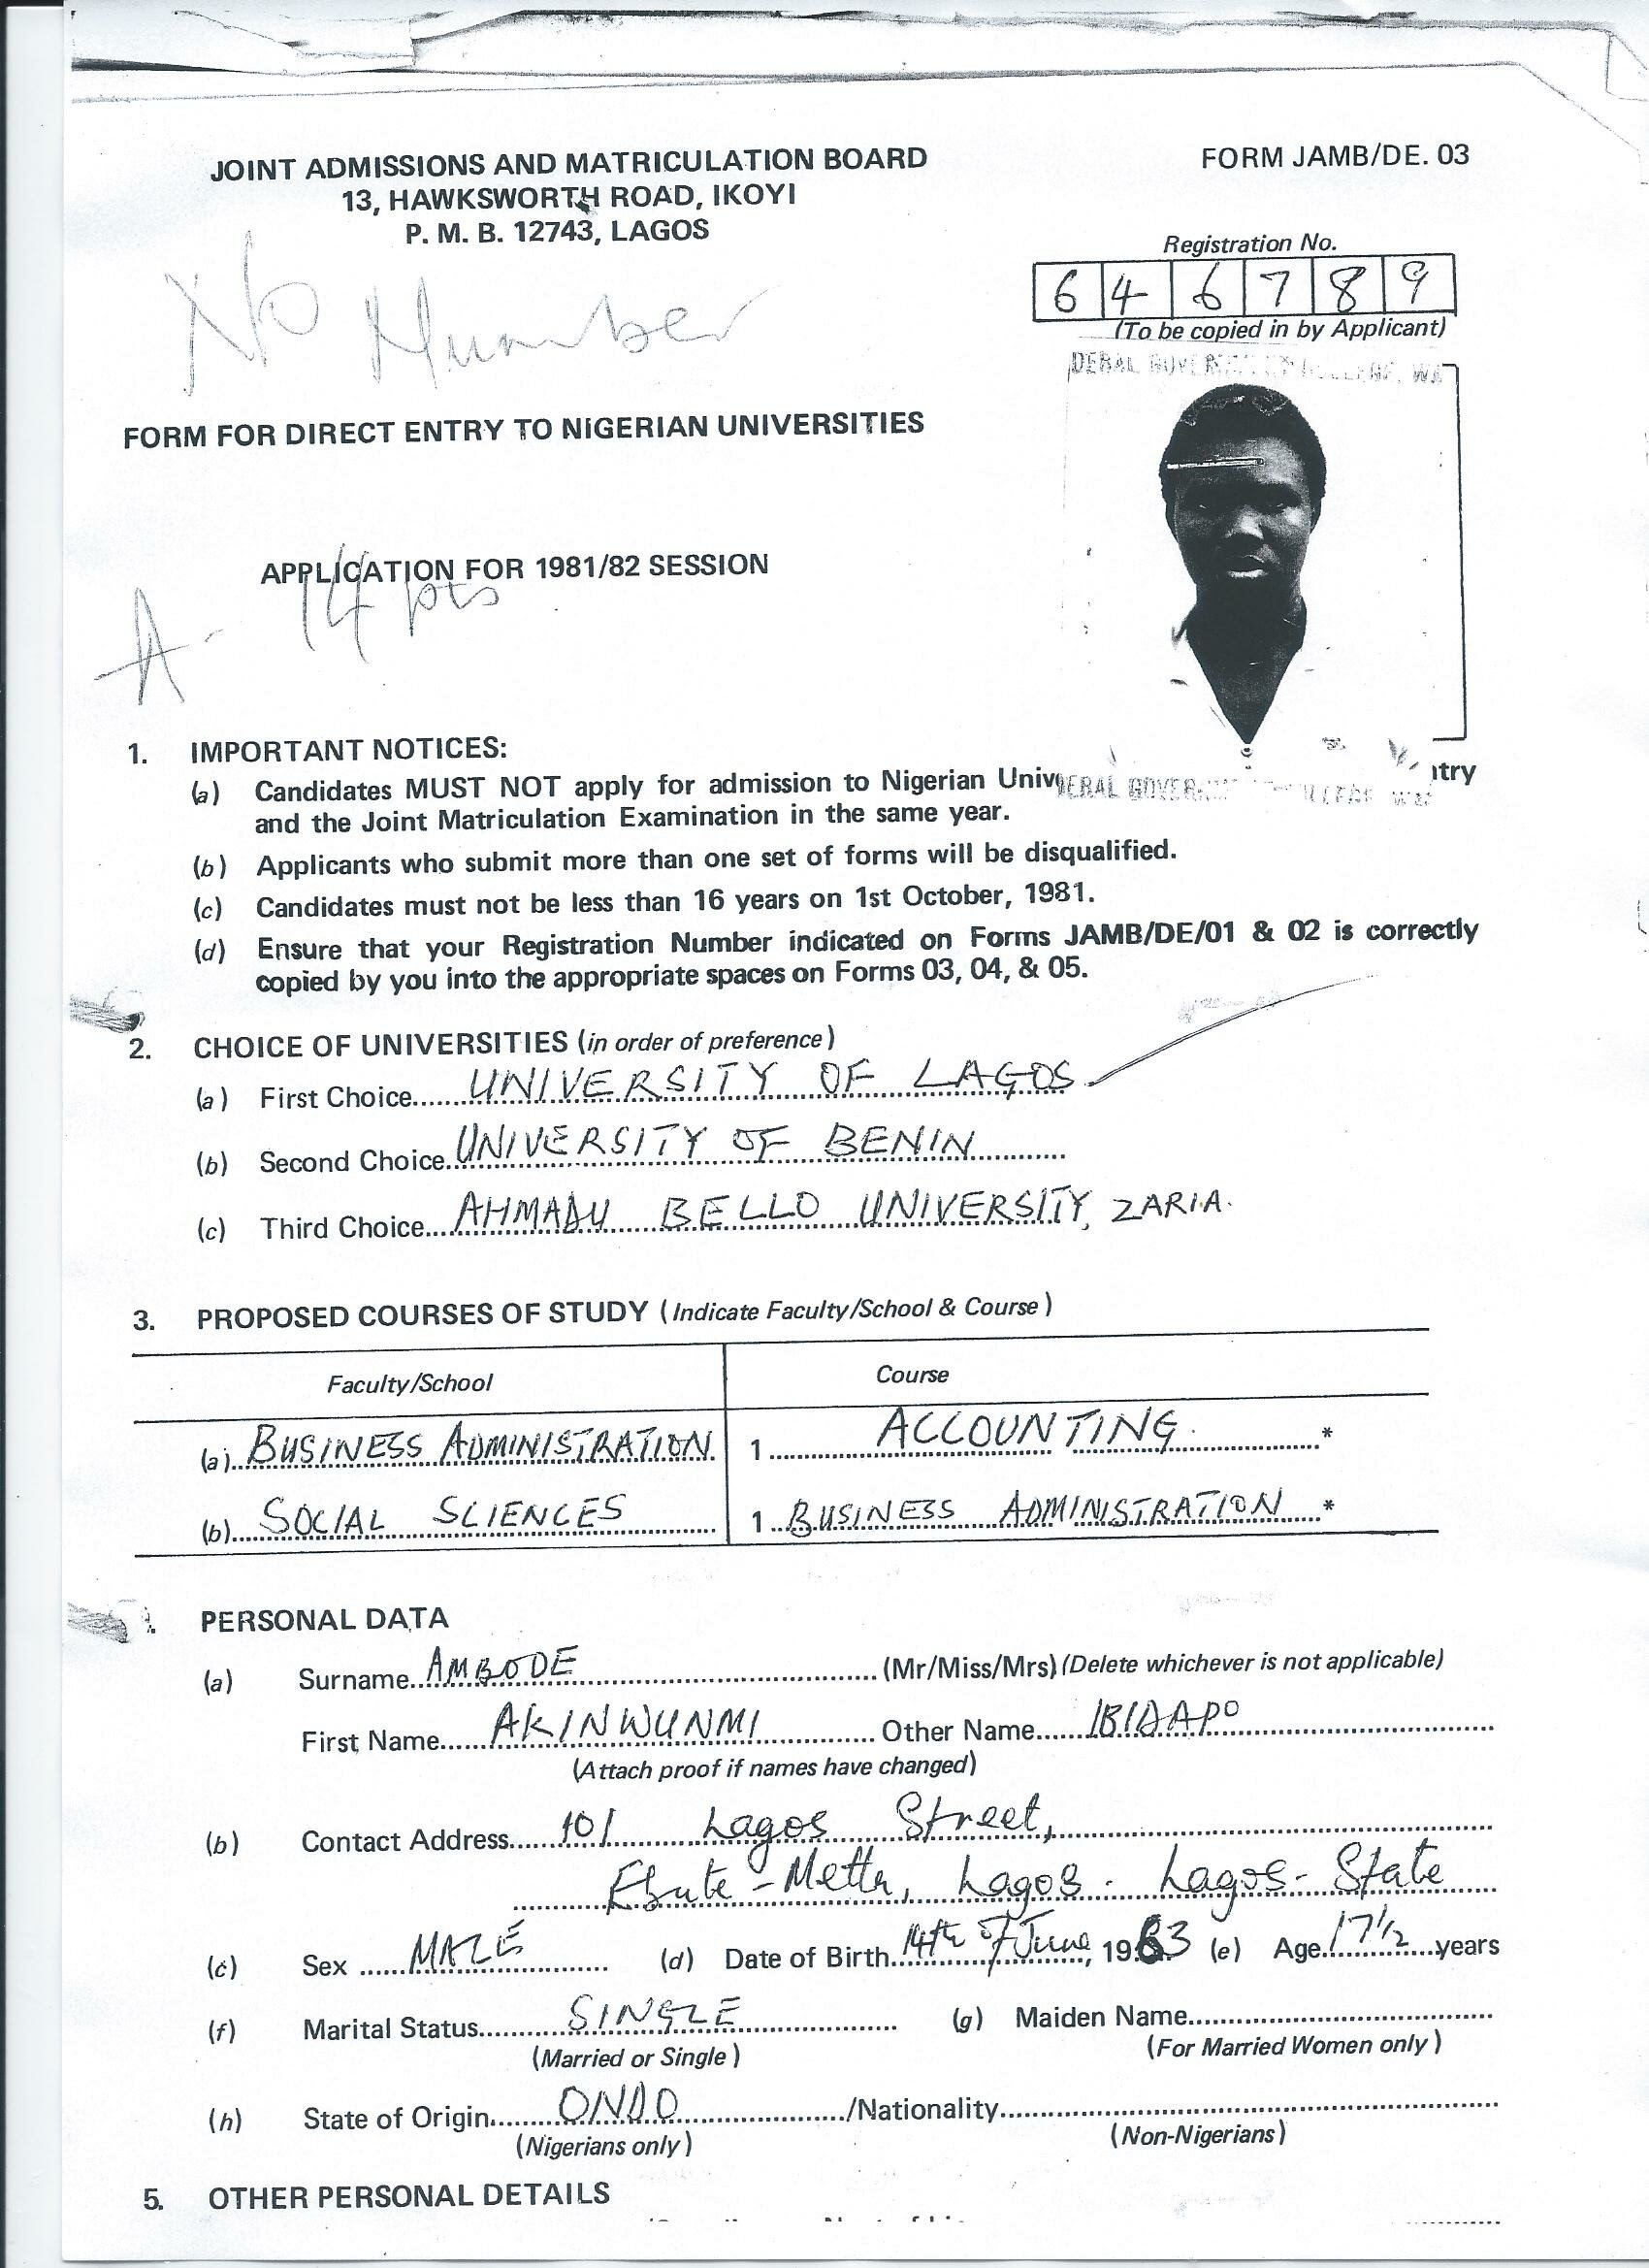 JOINT ADMISSIONS AND MATRICULATION BOARD
13, HAWKSWORTH ROAD, IKOYI
P. M. B. 12743, LAGOS
FORM JAMB/DE. 03
Registration No.
6 4 6 7 8 9
(To be copied in by Applicant)
No Number
DERAL GOVER
FORM FOR DIRECT ENTRY TO NIGERIAN UNIVERSITIES
APPLICATION FOR 1981/82 SESSION
A - 14 pts
1. IMPORTANT NOTICES:
(a) Candidates MUST NOT apply for admission to Nigerian Univ ntry
ERAL GOVER
and the Joint Matriculation Examination in the same year.
(b) Applicants who submit more than one set of forms will be disqualified.
(c) Candidates must not be less than 16 years on 1st October, 1981.
(d) Ensure that your Registration Number indicated on Forms JAMB/DE/01 & 02 is correctly
copied by you into the appropriate spaces on Forms 03, 04, & 05.
2. CHOICE OF UNIVERSITIES (in order of preference)
(a) First Choice UNIVERSITY OF LAGOS
(b) Second Choice UNIVERSITY OF BENIN
(c) Third Choice AHMADU BELLO UNIVERSITY, ZARIA.
3. PROPOSED COURSES OF STUDY (Indicate Faculty/School & Course)
Faculty/School Course
(a) BUSINESS ADMINISTRATION 1 ACCOUNTING. *
(b) SOCIAL SCIENCES 1 BUSINESS ADMINISTRATION *
PERSONAL DATA
(a) Surname AMBODE (Mr/Miss/Mrs) (Delete whichever is not applicable)
First Name AKINWUNMI Other Name IBIDAPO
(Attach proof if names have changed)
(b) Contact Address 101 Lagos Street,
Ebute-Metta, Lagos. Lagos-State
(c) Sex MALE (d) Date of Birth 14th of June, 1963 (e) Age 17½ years
(f) Marital Status SINGLE (g) Maiden Name
(Married or Single) (For Married Women only)
(h) State of Origin ONDO /Nationality
(Nigerians only) (Non-Nigerians)
5. OTHER PERSONAL DETAILS